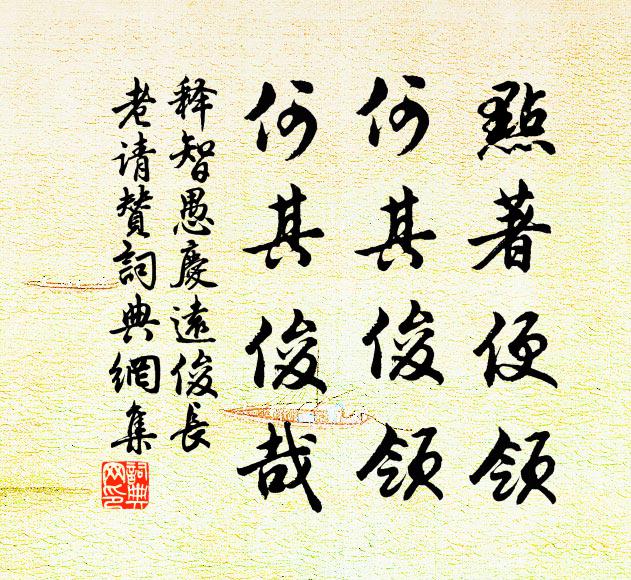 點著便領
何其俊領
何其俊哉
释智愚慶遠俊長
老请贊詞典網集
詞典网印